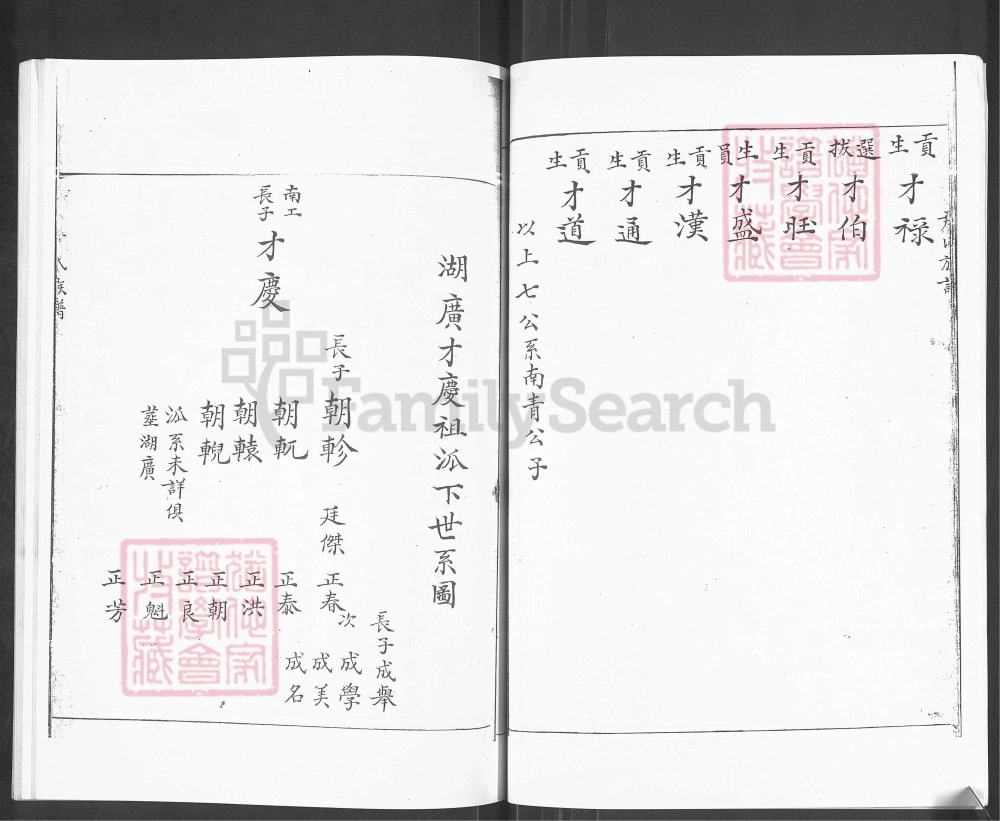 貢生 才禄
選拔 才伯
貢生 才旺
生員 才盛
貢生 才漢
貢生 才通
貢生 才道
以上七公系南青公子
湖廣才慶祖派下世系圖
南工長子 才慶
長子 朝軫
朝軏
朝轅
朝輗
派系未詳俱
塟湖廣
廷傑
正春
正泰
正洪
正朝
正良
正魁
正芳
長子成舉
次 成學
成美
成名
族譜
FamilySearch